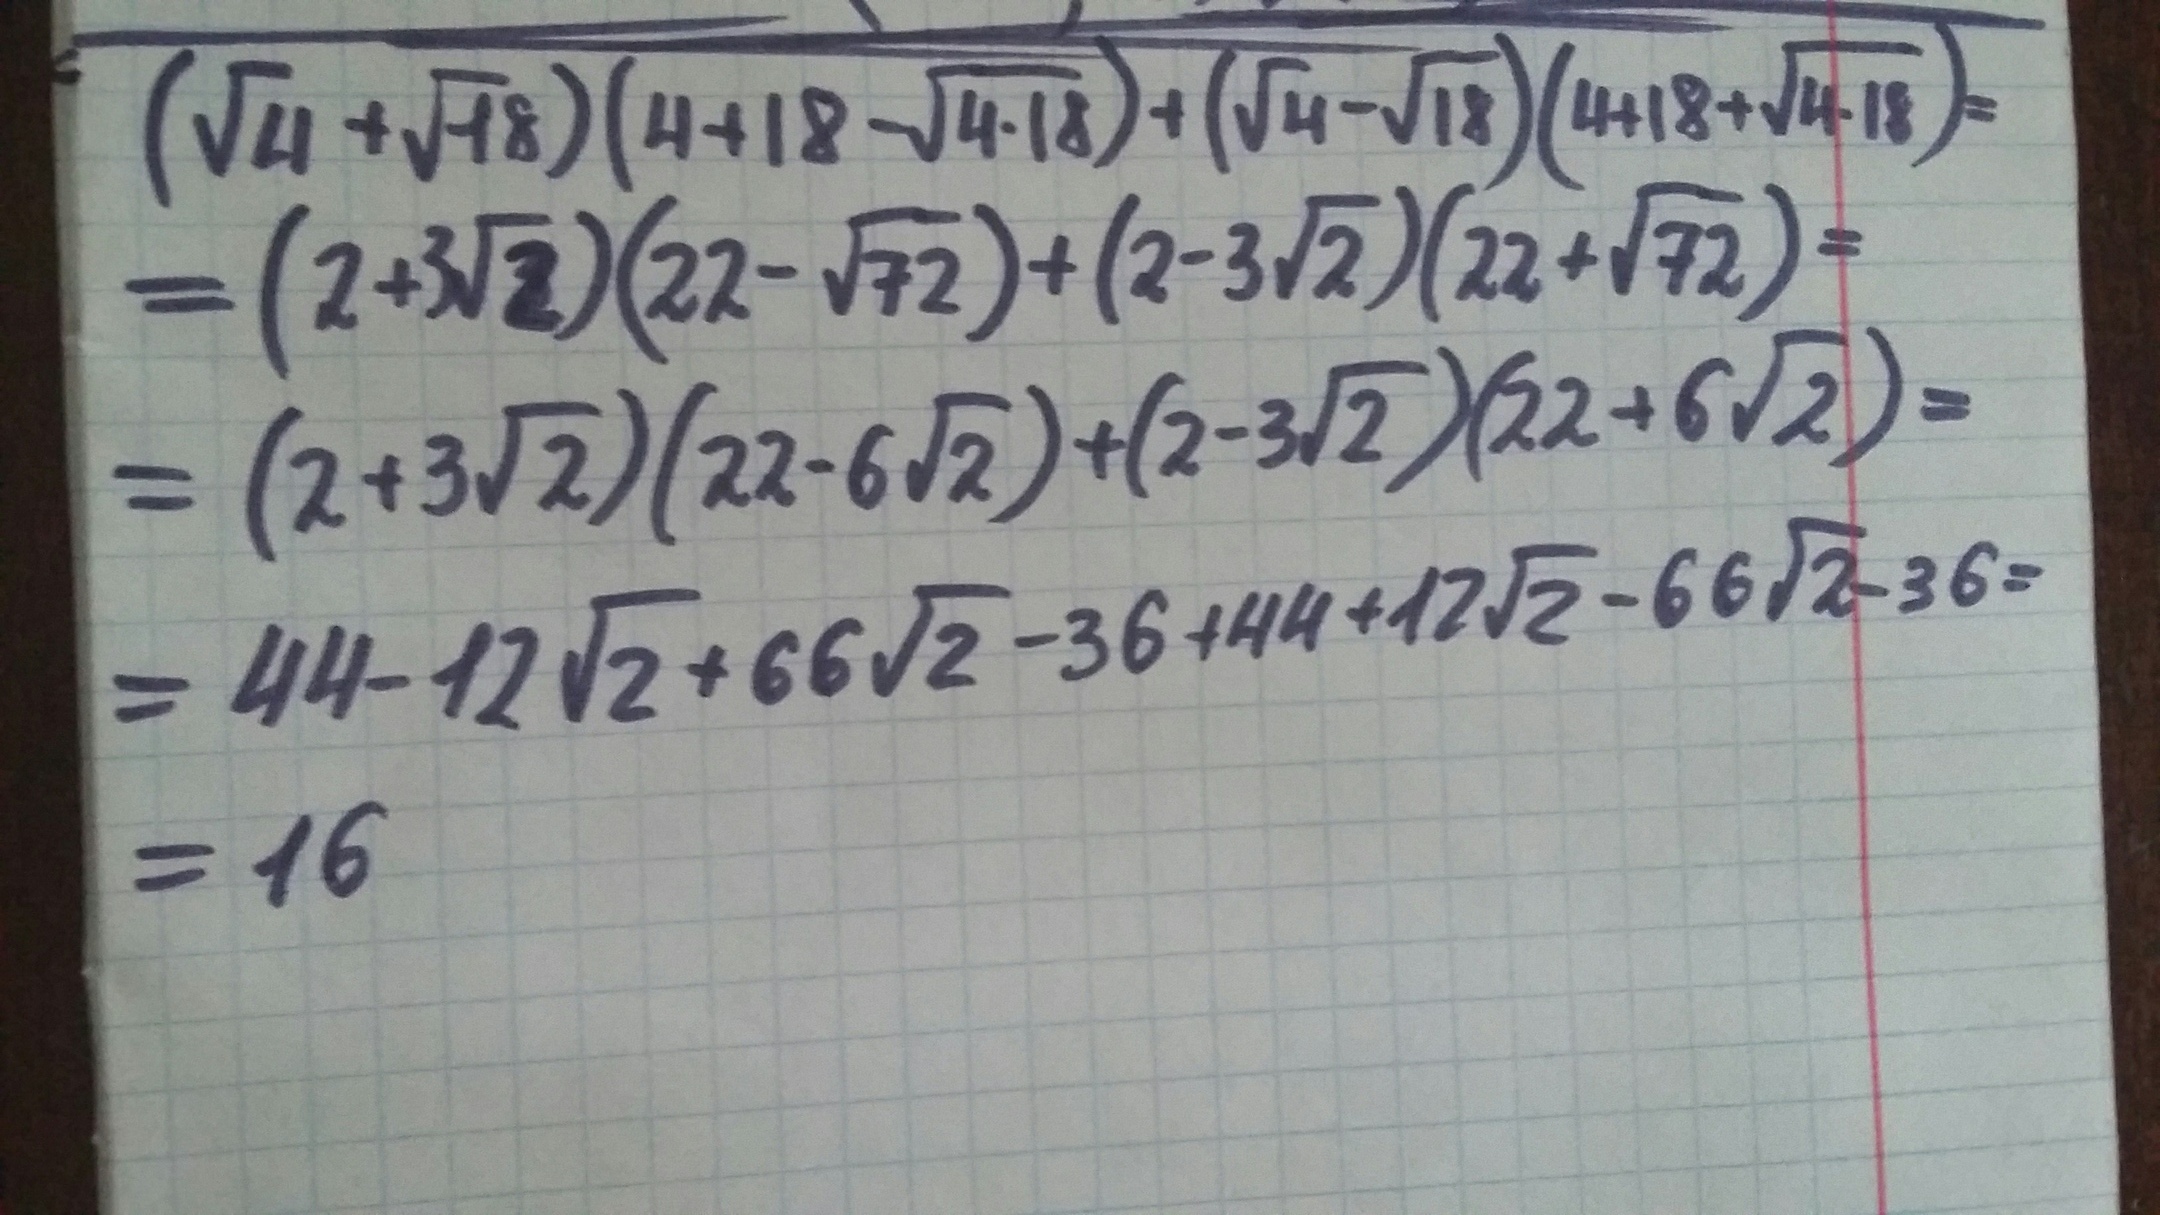 = (√4 + √18)(4+18 - √4·18) + (√4 - √18)(4+18+√4·18) =
= (2+3√2)(22-√72)+(2-3√2)(22+√72) =
= (2+3√2)(22-6√2)+(2-3√2)(22+6√2) =
= 44-12√2+66√2-36+44+12√2-66√2-36=
= 16